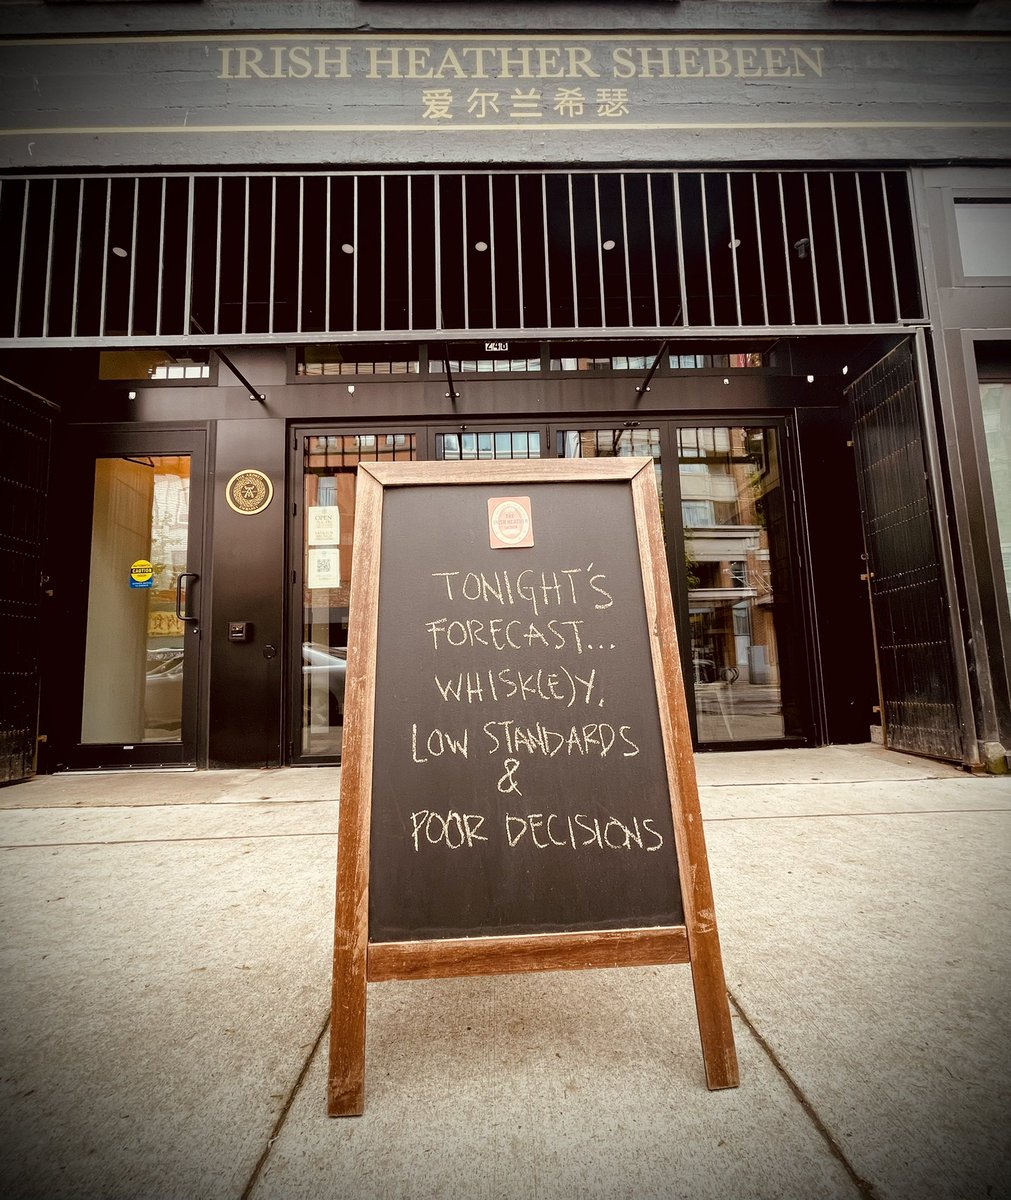 IRISH HEATHER SHEBEEN
爱尔兰希瑟
248
OPEN
CAUTION
THE
IRISH HEATHER
TONIGHT'S
FORECAST...
WHISK(E)Y,
LOW STANDARDS
&
POOR DECISIONS